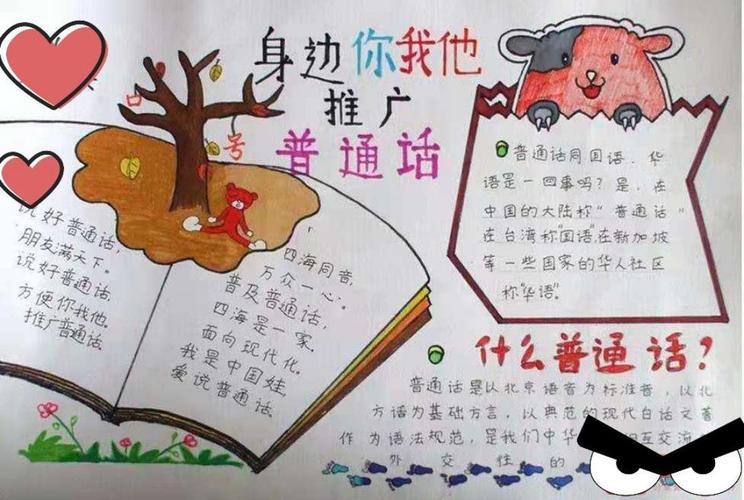 身边你我他
推广
普通话
口
号
说好普通话,
朋友满天下。
说好普通话,
方便你我他。
推广普通话。
四海同音,
万众一心。
普及普通话,
四海是一家。
面向现代化。
我是中国娃,
爱说普通话。
普通话同国语、华
语是一回事吗?是、在
中国的大陆称"普通话"
在台湾称"国语"在新加坡
等一些国家的华人社区
称"华语"。
什么普通话?
普通话是以北京语音为标准音,以北
方话为基础方言,以典范的现代白话文著
作为语法规范,是我们中华互交流
外交性的